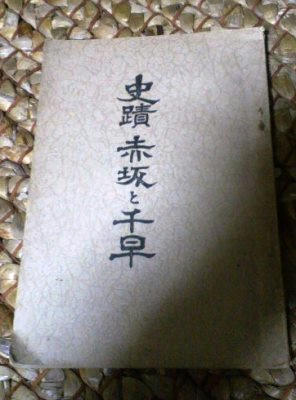 史蹟 赤坂と千早